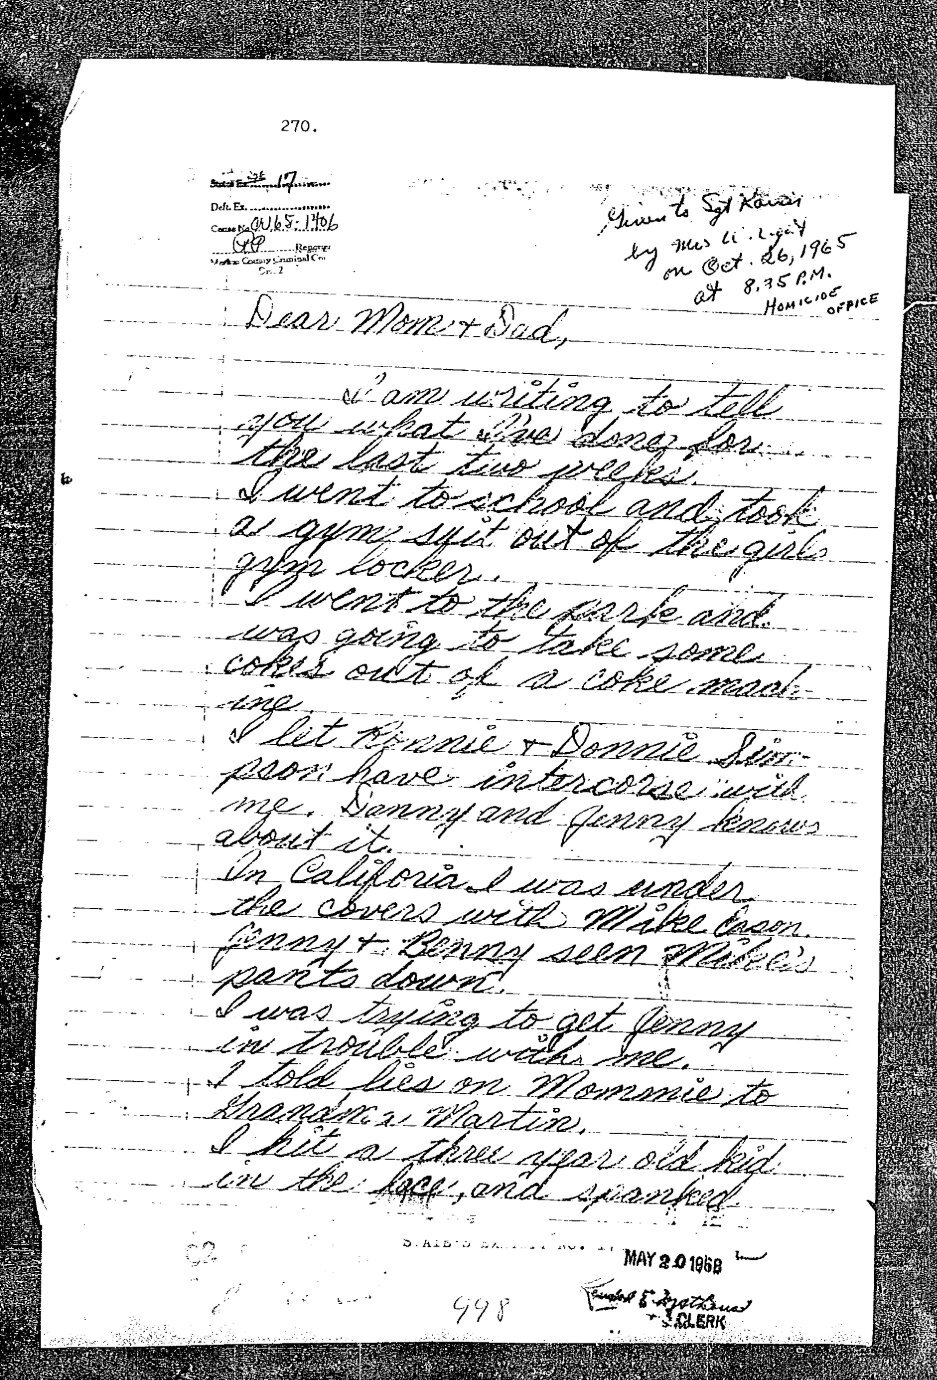 270.
State's Ex. 17
Deft. Ex.
Cause No. CR65-1406
Reporter
Marion County Criminal Crt.
Given to Sgt Kaiser
by Mrs
on Oct. 26, 1965
at 8.35 P.M.
HOMICIDE
OFFICE
Dear Mom + Dad,
I am writing to tell
you what I've done for
the last two weeks.
I went to school and took
a gym suit out of the girls
gym locker.
I went to the park and
was going to take some
cokes out of a coke mach-
ine.
I let Ronnie + Donnie Sim-
pson have intercorse with
me. Danny and Jenny knows
about it.
In Califoria I was under
the covers with Mike
Jenny + Benny seen Mike's
pants down.
I was trying to get Jenny
in trouble with me.
I told lies on Mommie to
Grandma Martin.
I hit a three year old kid
in the face, and spanked
MAY 20 1968
998
CLERK